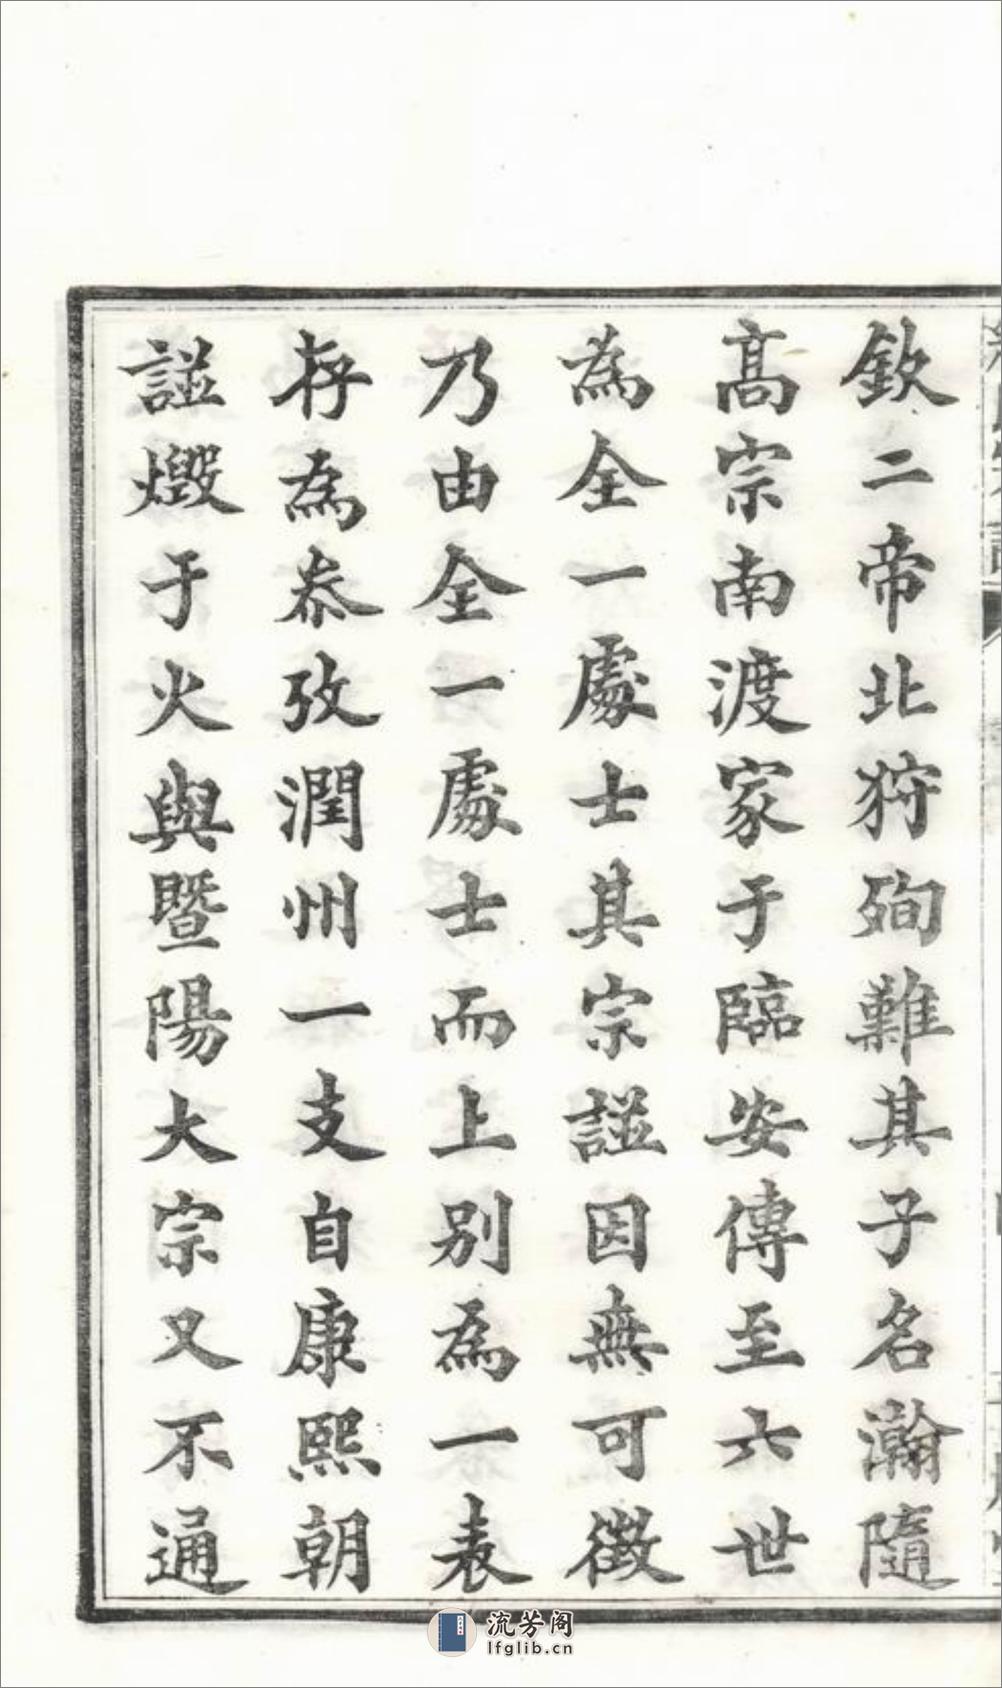 欽二帝北狩殉難其子名瀚隨
髙宗南渡家于臨安傳至六世
為全一處士其宗諡因無可徵
乃由全一處士而上别為一表
存為叅攷潤州一支自康熙朝
諡燬于火與暨陽大宗又不通
流芳阁
lfglib.cn